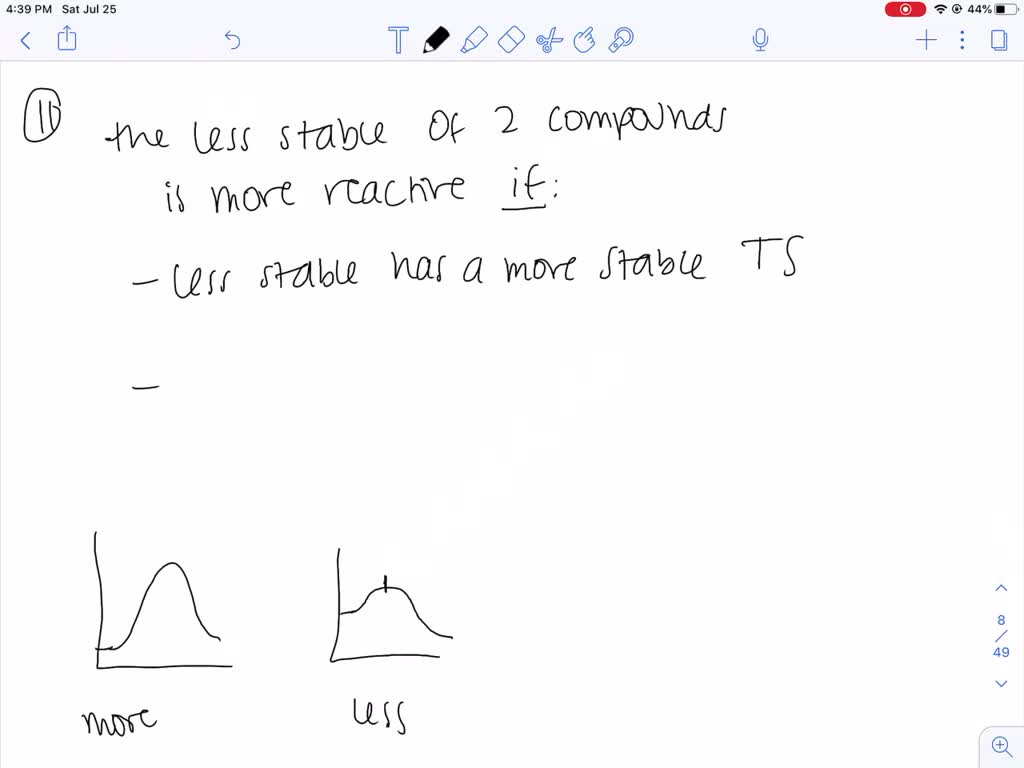 4:39 PM Sat Jul 25
44%
11
the less stable of 2 compounds
is more reactive if:
- less stable has a more stable TS
-
more
less
8
/
49